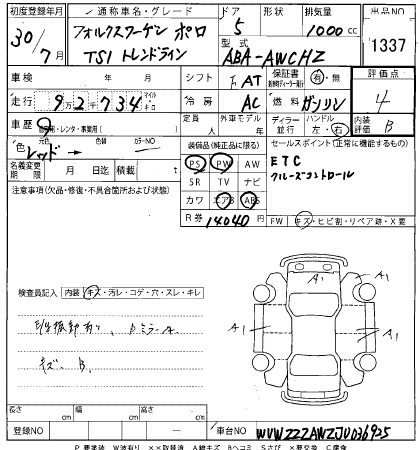 初度登録年月
通称車名・グレード
ドア
形状
排気量
出品NO
30/7月
フォルクスワーゲン ポロ
TSI トレンドライン
5
1000cc
1337
型式
ABA-AWCHZ
車検 年 月 日
シフト
F AT
保証書
有・無
評価点
4
走行 92734 マイル キロ
冷房
AC
燃料
ガソリン
車歴
自家用・レンタ・事業用( )
定員
人
外車モデル
年
ディーラー
並行
ハンドル
左・右
内装評価
B
色
元色
レッド →
色替
カラーNO
名義変更期限 月 日迄 積載 t
装備品(純正品に限る)
PS PW AW
SR TV ナビ
カワ エアB ABS
R券 14040 円
セールスポイント(正常に機能するもの)
ETC
クルーズコントロール
注意事項(欠品・修復・不具合箇所および状態)
FW キズ・ヒビ割・リペア跡・X要
検査員記入 内装 キズ・汚レ・コゲ・穴・スレ・キレ
キズ B
A1
A1
A1
A1
長さ cm
幅 cm
高さ cm
登録NO
車台NO
WVWZZZAWZJU036925
P 要塗装 W波有り ××取替済 A線キズ Bヘコミ Sさび ×要交換 C腐食